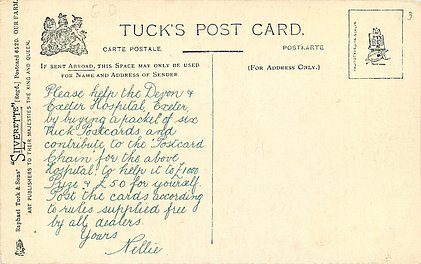 E D
3
TUCK'S POST CARD.
CARTE POSTALE.
POSTKARTE
IF SENT ABROAD, THIS SPACE MAY ONLY BE USED
FOR NAME AND ADDRESS OF SENDER.
(FOR ADDRESS ONLY.)
Please help the Devon &
Exeter Hospital, Exeter,
by buying a packet of six
Tuck Postcards and
contribute to the "Postcard
Chain for the above
Hospital" to help it to £1000
Prize & £50 for yourself.
Post the cards according
to rules supplied free
by all dealers.
Yours
Nellie
Raphael Tuck & Sons' "SILVERETTE" [Regd.] Postcard 6520. OUR FARM.
ART PUBLISHERS TO THEIR MAJESTIES THE KING AND QUEEN.